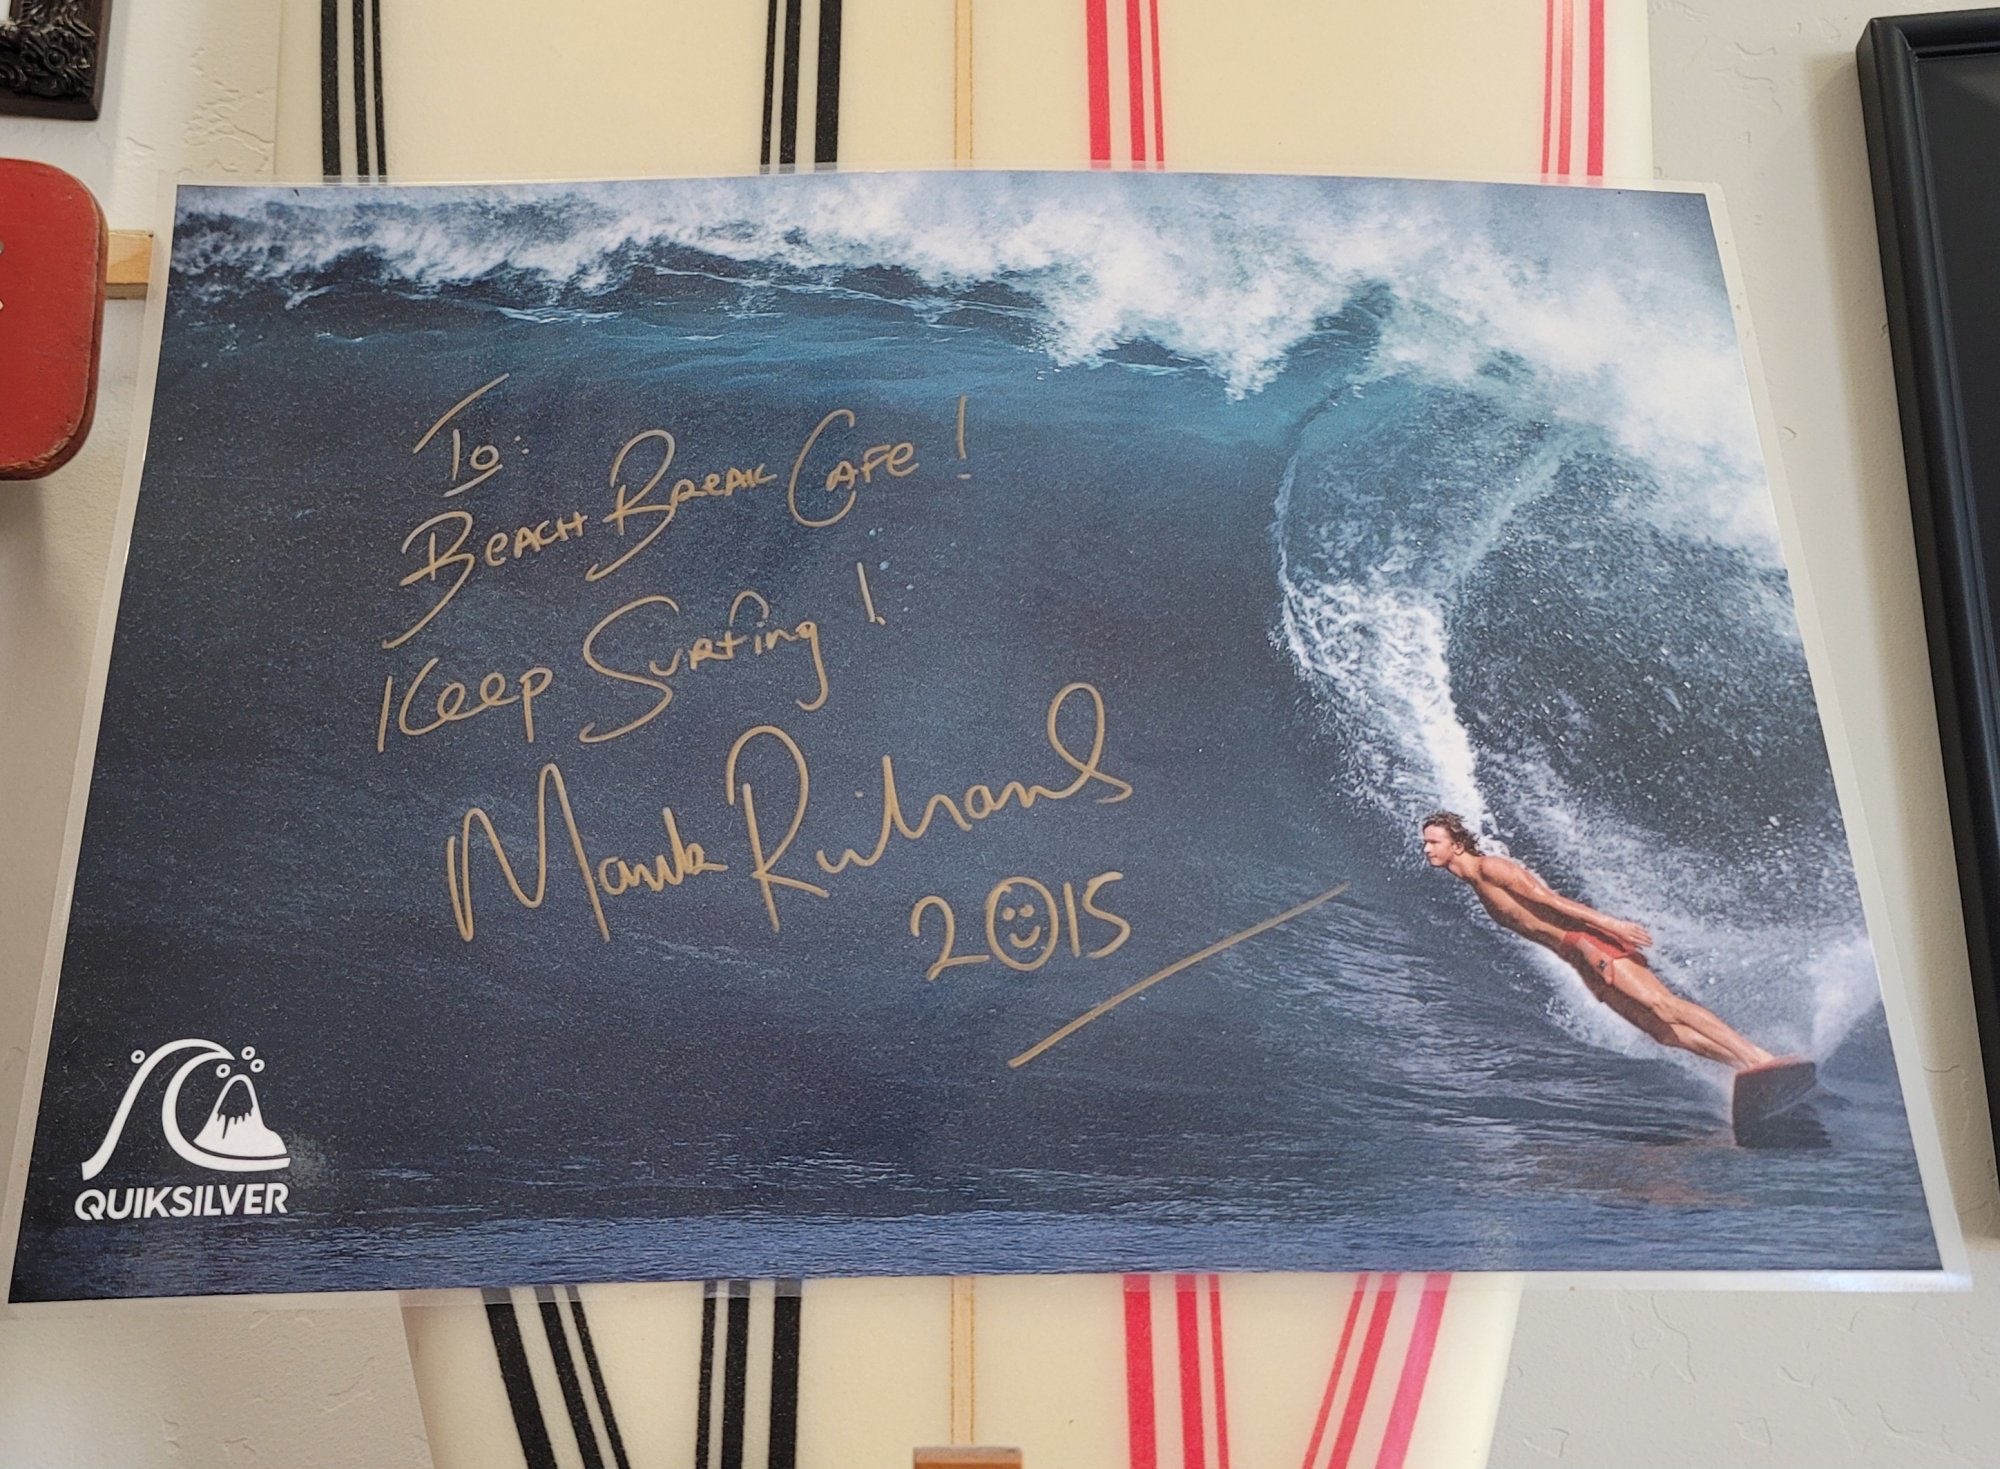 To:
Beach Break Cafe!
Keep Surfing!
Mark Richards
2015
QUIKSILVER